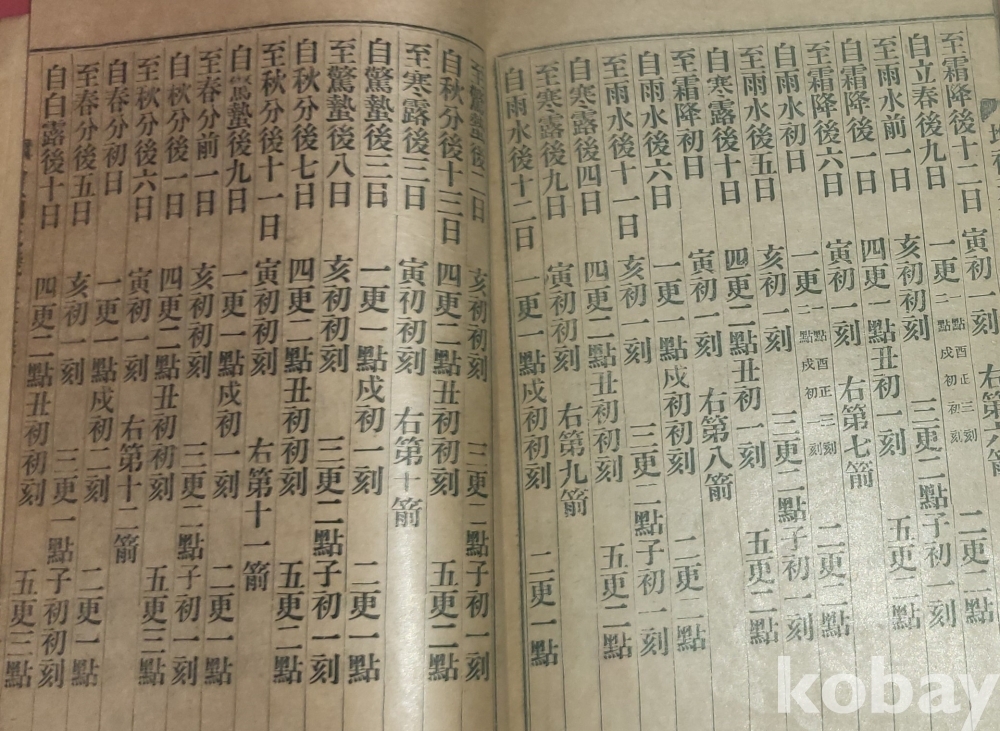 至霜降後十二日 寅初一刻 右第六箭
自立春後九日 一更一點酉正三刻二點戌初初刻 二更二點
至雨水前一日 亥初初刻 三更二點子初一刻
自霜降後一日 四更一點丑初一刻 五更二點
至霜降後六日 寅初一刻 右第七箭
自雨水初日 一更一點酉正三刻二點戌初刻 二更二點
至雨水後五日 亥初一刻 三更二點子初一刻
自寒露後十日 四更二點丑初一刻 五更二點
至霜降初日 寅初一刻 右第八箭
自雨水後六日 一更一點戌初一刻 二更二點
至雨水後十一日 亥初一刻 三更二點子初一刻
自寒露後四日 四更二點丑初初刻 五更二點
至寒露後九日 寅初初刻 右第九箭
自雨水後十二日 一更一點戌初初刻 二更一點
至驚蟄後二日 亥初初刻 三更二點子初一刻
自秋分後十三日 四更二點丑初初刻 五更二點
至寒露後三日 寅初初刻 右第十箭
自驚蟄後三日 一更一點戌初一刻 二更一點
至驚蟄後八日 亥初初刻 三更二點子初一刻
自秋分後七日 四更二點丑初初刻 五更二點
至秋分後十一日 寅初初刻 右第十一箭
自驚蟄後九日 一更一點戌初一刻 二更一點
至春分前一日 亥初初刻 三更二點子初一刻
自秋分後一日 四更二點丑初初刻 五更三點
至秋分後六日 寅初一刻 右第十二箭
自春分初日 一更一點戌初二刻 二更一點
至春分後五日 亥初一刻 三更一點子初初刻
自白露後十日 四更二點丑初初刻 五更三點
kobay